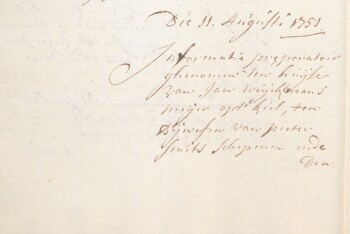 Die 11. Augusti 1751
Informatie preperatoir
ghenomen ten huijse
van Jan
meijer opt kiel, ten
bijwesen van peeter
smits schepenen ende
Den